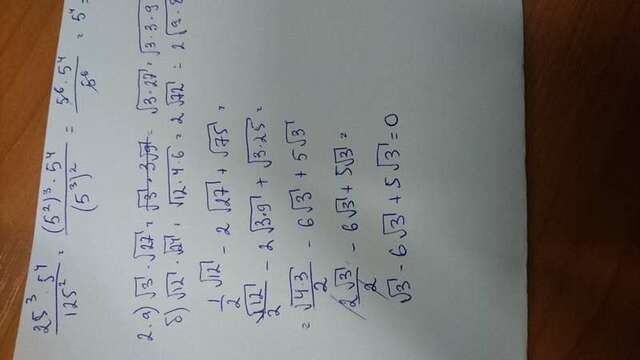 25³ · 5⁴ / 125² = (5²)³ · 5⁴ / (5³)² = 5⁶ · 5⁴ / 5⁶ = 5⁴ =
2. а) √3 · √27 = √3 · 3√9 = √3·27 = √3·3·9
б) √12 · √24 = √12·4·6 = 2√72 = 2√9·8
1/2 √12 - 2√27 + √75 =
√12/2 - 2√3·9 + √3·25 =
= √4·3/2 - 6√3 + 5√3
2√3/2 - 6√3 + 5√3 =
√3 - 6√3 + 5√3 = 0